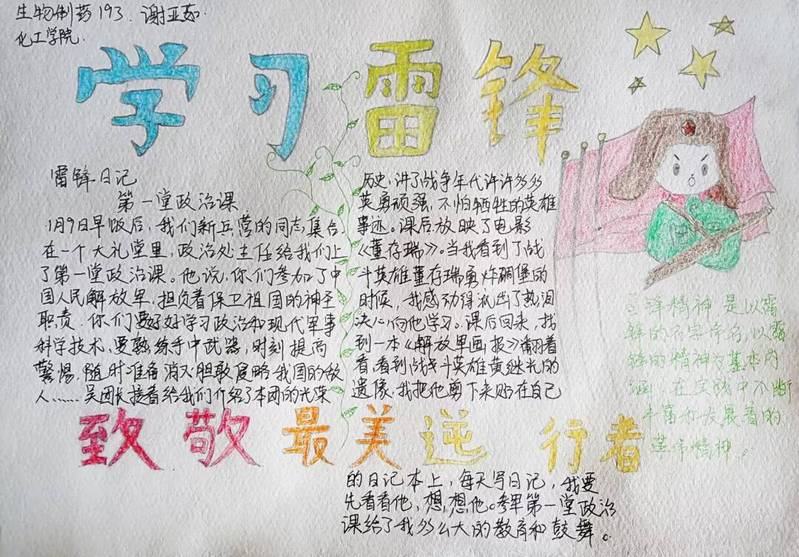 生物制药193. 谢亚茹
化工学院.
学习雷锋
雷锋日记
第一堂政治课
1月9日早饭后，我们新兵营的同志集合
在一个大礼堂里，政治处主任给我们上
了第一堂政治课。他说，你们参加了中
国人民解放军，担负着保卫祖国的神圣
职责，你们要好好学习政治和现代军事
科学技术，要熟练手中武器，时刻提高
警惕，随时准备消灭胆敢侵略我国的敌
人……吴团长接着给我们介绍了本团的光荣
历史，讲了战争年代许许多多
英勇顽强，不怕牺牲的英雄
事迹。课后放映了电影
《董存瑞》。当我看到了战
斗英雄董存瑞勇炸碉堡的
时候，我感动得流出了热泪
决心向他学习。课后回来，找
到一本《解放军画报》翻着
看，看到战斗英雄黄继光的
遗像，我把他剪下来贴在自己
的日记本上，每天写日记，我要
先看看他，想，想他。参军第一堂政治
课给了我多么大的教育和鼓舞。
锋精神是以雷
锋的名字命名，以雷
锋的精神为基本内
涵，在实践中不断
丰富和发展着的
革命精神。
致敬最美逆行者